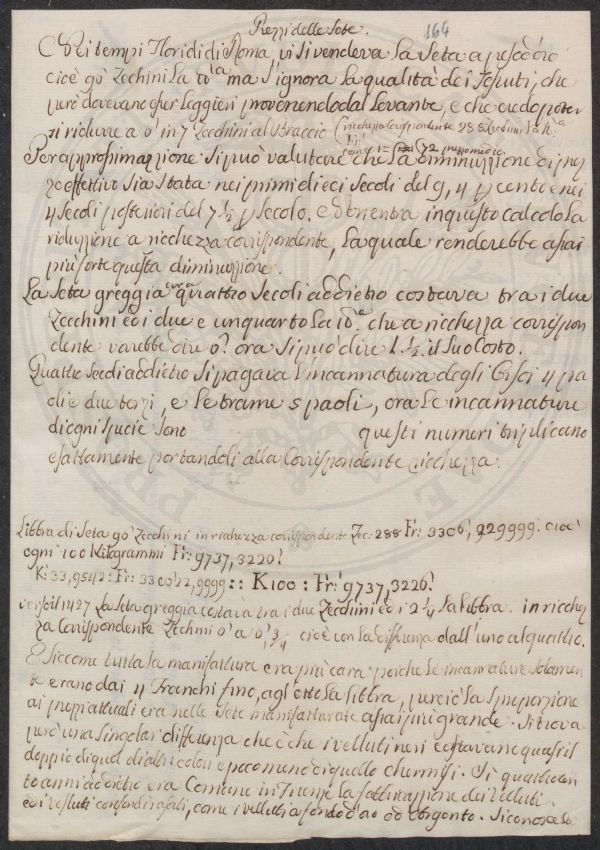 Prezzi delle Sete. 164
Nei tempi Floridi di Roma, vi si vendeva la Seta a peso d'oro
cioè 90 Zecchini la ma s'ignora la qualità dei Tessuti, che
però dovevano esser leggieri provenendo dal Levante, e che credo poter
si ridurre a o in 7 Zecchini al Braccio (ricchezza corrispondente 288
Per approssimazione si può valutare che la diminuzione di prez
zo effettivo sia stata nei primi dieci Secoli del 9,4 p cento e nei
4 Secoli posteriori del 7 1/2 p Secolo, e non entra in questo calcolo la
riduzione a ricchezza corrispondente, la quale renderebbe assai
più forte questa diminuzione.
La Seta greggia quattro Secoli addietro costava tra i due
Zecchini ed i due e un quarto la che a ricchezza corrispon
dente varebbe ora si può dire il suo Costo.
Quattro Secoli addietro si pagava l'incannatura degli Orsoi 4 pa
oli e due terzi, e le trame 5 paoli, ora le incannature
di ogni specie sono questi numeri triplicano
esattamente portandoli alla Corrispondente ricchezza.
Libbra di Seta 90 Zecchini in ricchezza corrispondente Zec: 288 Fr: 3306, 229999. cioè
ogni 100 Kilogrammi Fr: 9737,3226.
K: 33,9542 : Fr: 3300 :: K100 : Fr: 9737,3226.
verso il 1427 la Seta greggia costava tra i due Zecchini ed i 2 1/4 la libbra. in ricchez
za Corrispondente Zecchini cioè con la differenza dall'uno al quattro.
E siccome tutta la manifattura era più cara poichè le incannature solamen
te erano dai 4 Franchi fino, agl'otto la libbra, perciò la sproporzione
ai prezzi attuali era nelle Sete manifatturate assai più grande. Si trova
però una singolar differenza che è che i velluti neri costavano quasi il
doppio di quel di altri colori e poco meno di quello chermisi. Si quattrocen
to anni addietro era Comune in Firenze la fabbricazione dei Velluti.
ed i Velluti come i velluti a fondo d'oro ed argento. Si conosce la